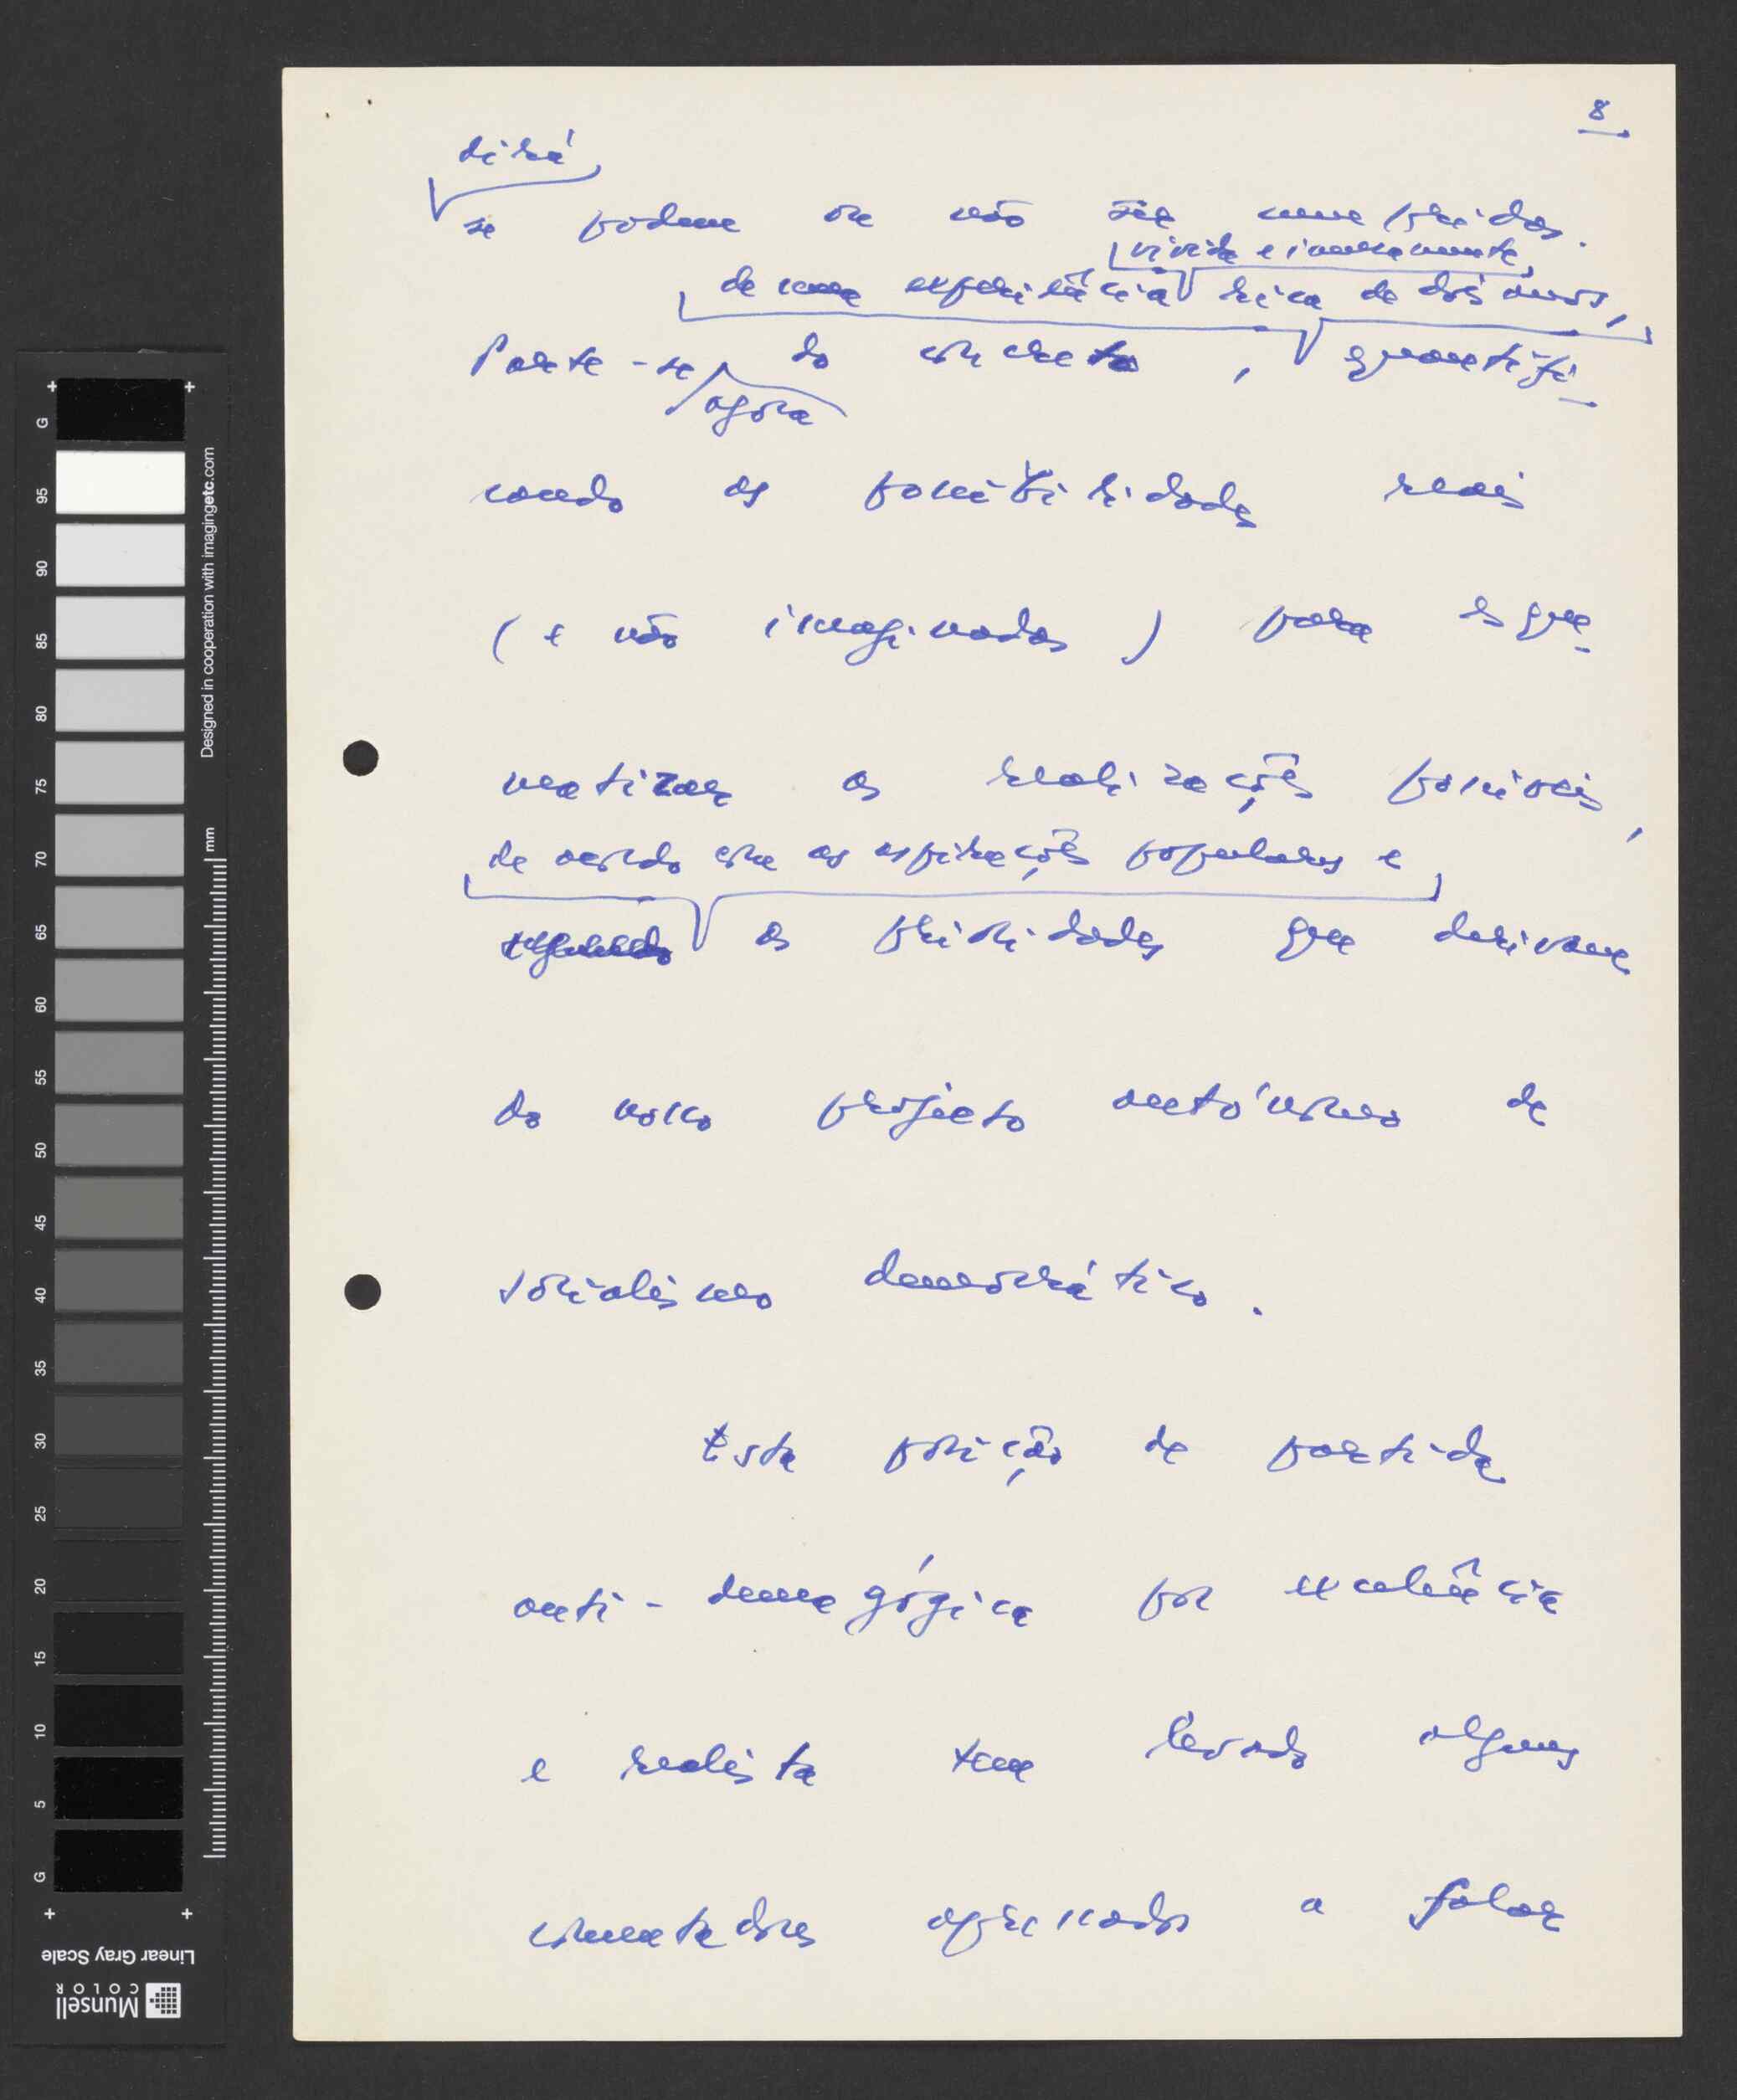 8
dirá
se podem ou não ser cumpridas.
vivida e imensamente
de uma experiência rica de dois anos,
Parte-se do concreto, quantifi-
agora
cando as possibilidades reais
(e não imaginadas) para esque-
matizar as realizações possíveis,
de acordo com as aspirações populares e
segundo as prioridades que derivam
do nosso projecto autónomo de
socialismo democrático.
Esta posição de partida
anti-demagógica por excelência
e realista tem levado alguns
comentadores apressados a falar
Designed in cooperation with imagingetc.com
mm
G 95 90 85 80 75 70 65 60 55 50 45 40 35 30 25 20 15 10 5 G
Linear Gray Scale
Munsell
COLOR